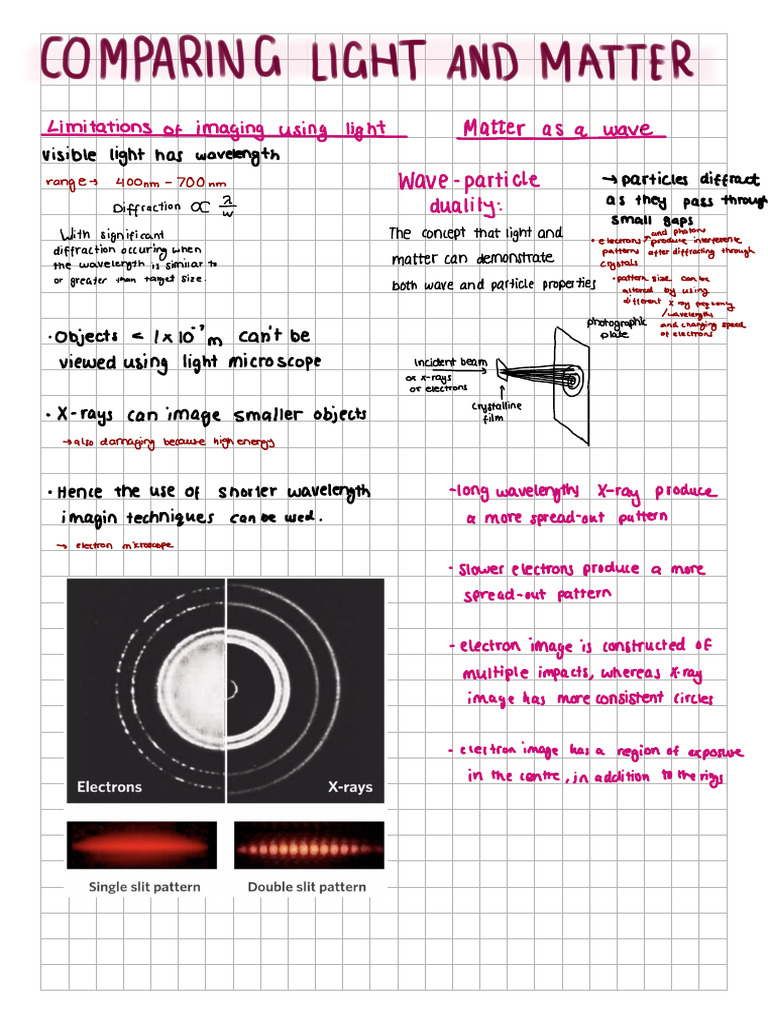 COMPARING LIGHT AND MATTER
Limitations of imaging using light
visible light has wavelength
range → 400nm - 700nm
Diffraction ∝ λ/w
With significant
diffraction occuring when
the wavelength is similar to
or greater than target size.
· Objects < 1x10⁻⁷ m can't be
viewed using light microscope
· X-rays can image smaller objects
→ also damaging because high energy
· Hence the use of shorter wavelength
imagin techniques can be used.
→ electron microscope
Electrons
X-rays
Single slit pattern
Double slit pattern
Matter as a wave
Wave-particle
duality:
The concept that light and
matter can demonstrate
both wave and particle properties
→ particles diffract
as they pass through
small gaps
and photons
· electrons ^ produce interference
patterns after diffracting through
crystals
· pattern size can be
altered by using
different x ray frequency
/wavelengths
and changing speed
of electrons
photographic
plate
incident beam
or x-rays
or electrons
crystalline
film
- long wavelengths X-ray produce
a more spread-out pattern
· slower electrons produce a more
spread-out pattern
- electron image is constructed of
multiple impacts, whereas x-ray
image has more consistent circles
- electron image has a region of exposure
in the centre, in addition to the rings